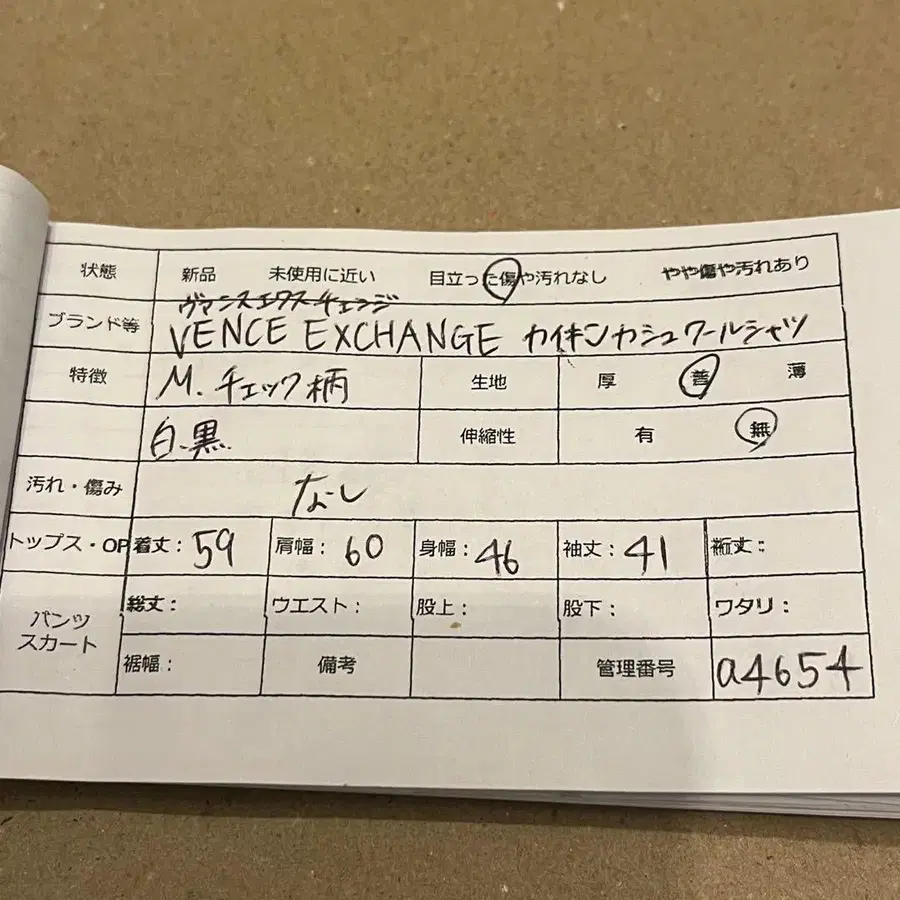 状態 新品 未使用に近い 目立った傷や汚れなし やや傷や汚れあり
ヴァンスエクスチェンジ
ブランド等 VENCE EXCHANGE カイキンカシュクールシャツ
特徴 M. チェック柄 生地 厚 普 薄
白、黒 伸縮性 有 無
汚れ・傷み なし
トップス・OP 着丈: 59 肩幅: 60 身幅: 46 袖丈: 41 裄丈:
パンツ 総丈: ウエスト: 股上: 股下: ワタリ:
スカート 裾幅: 備考 管理番号 a4654